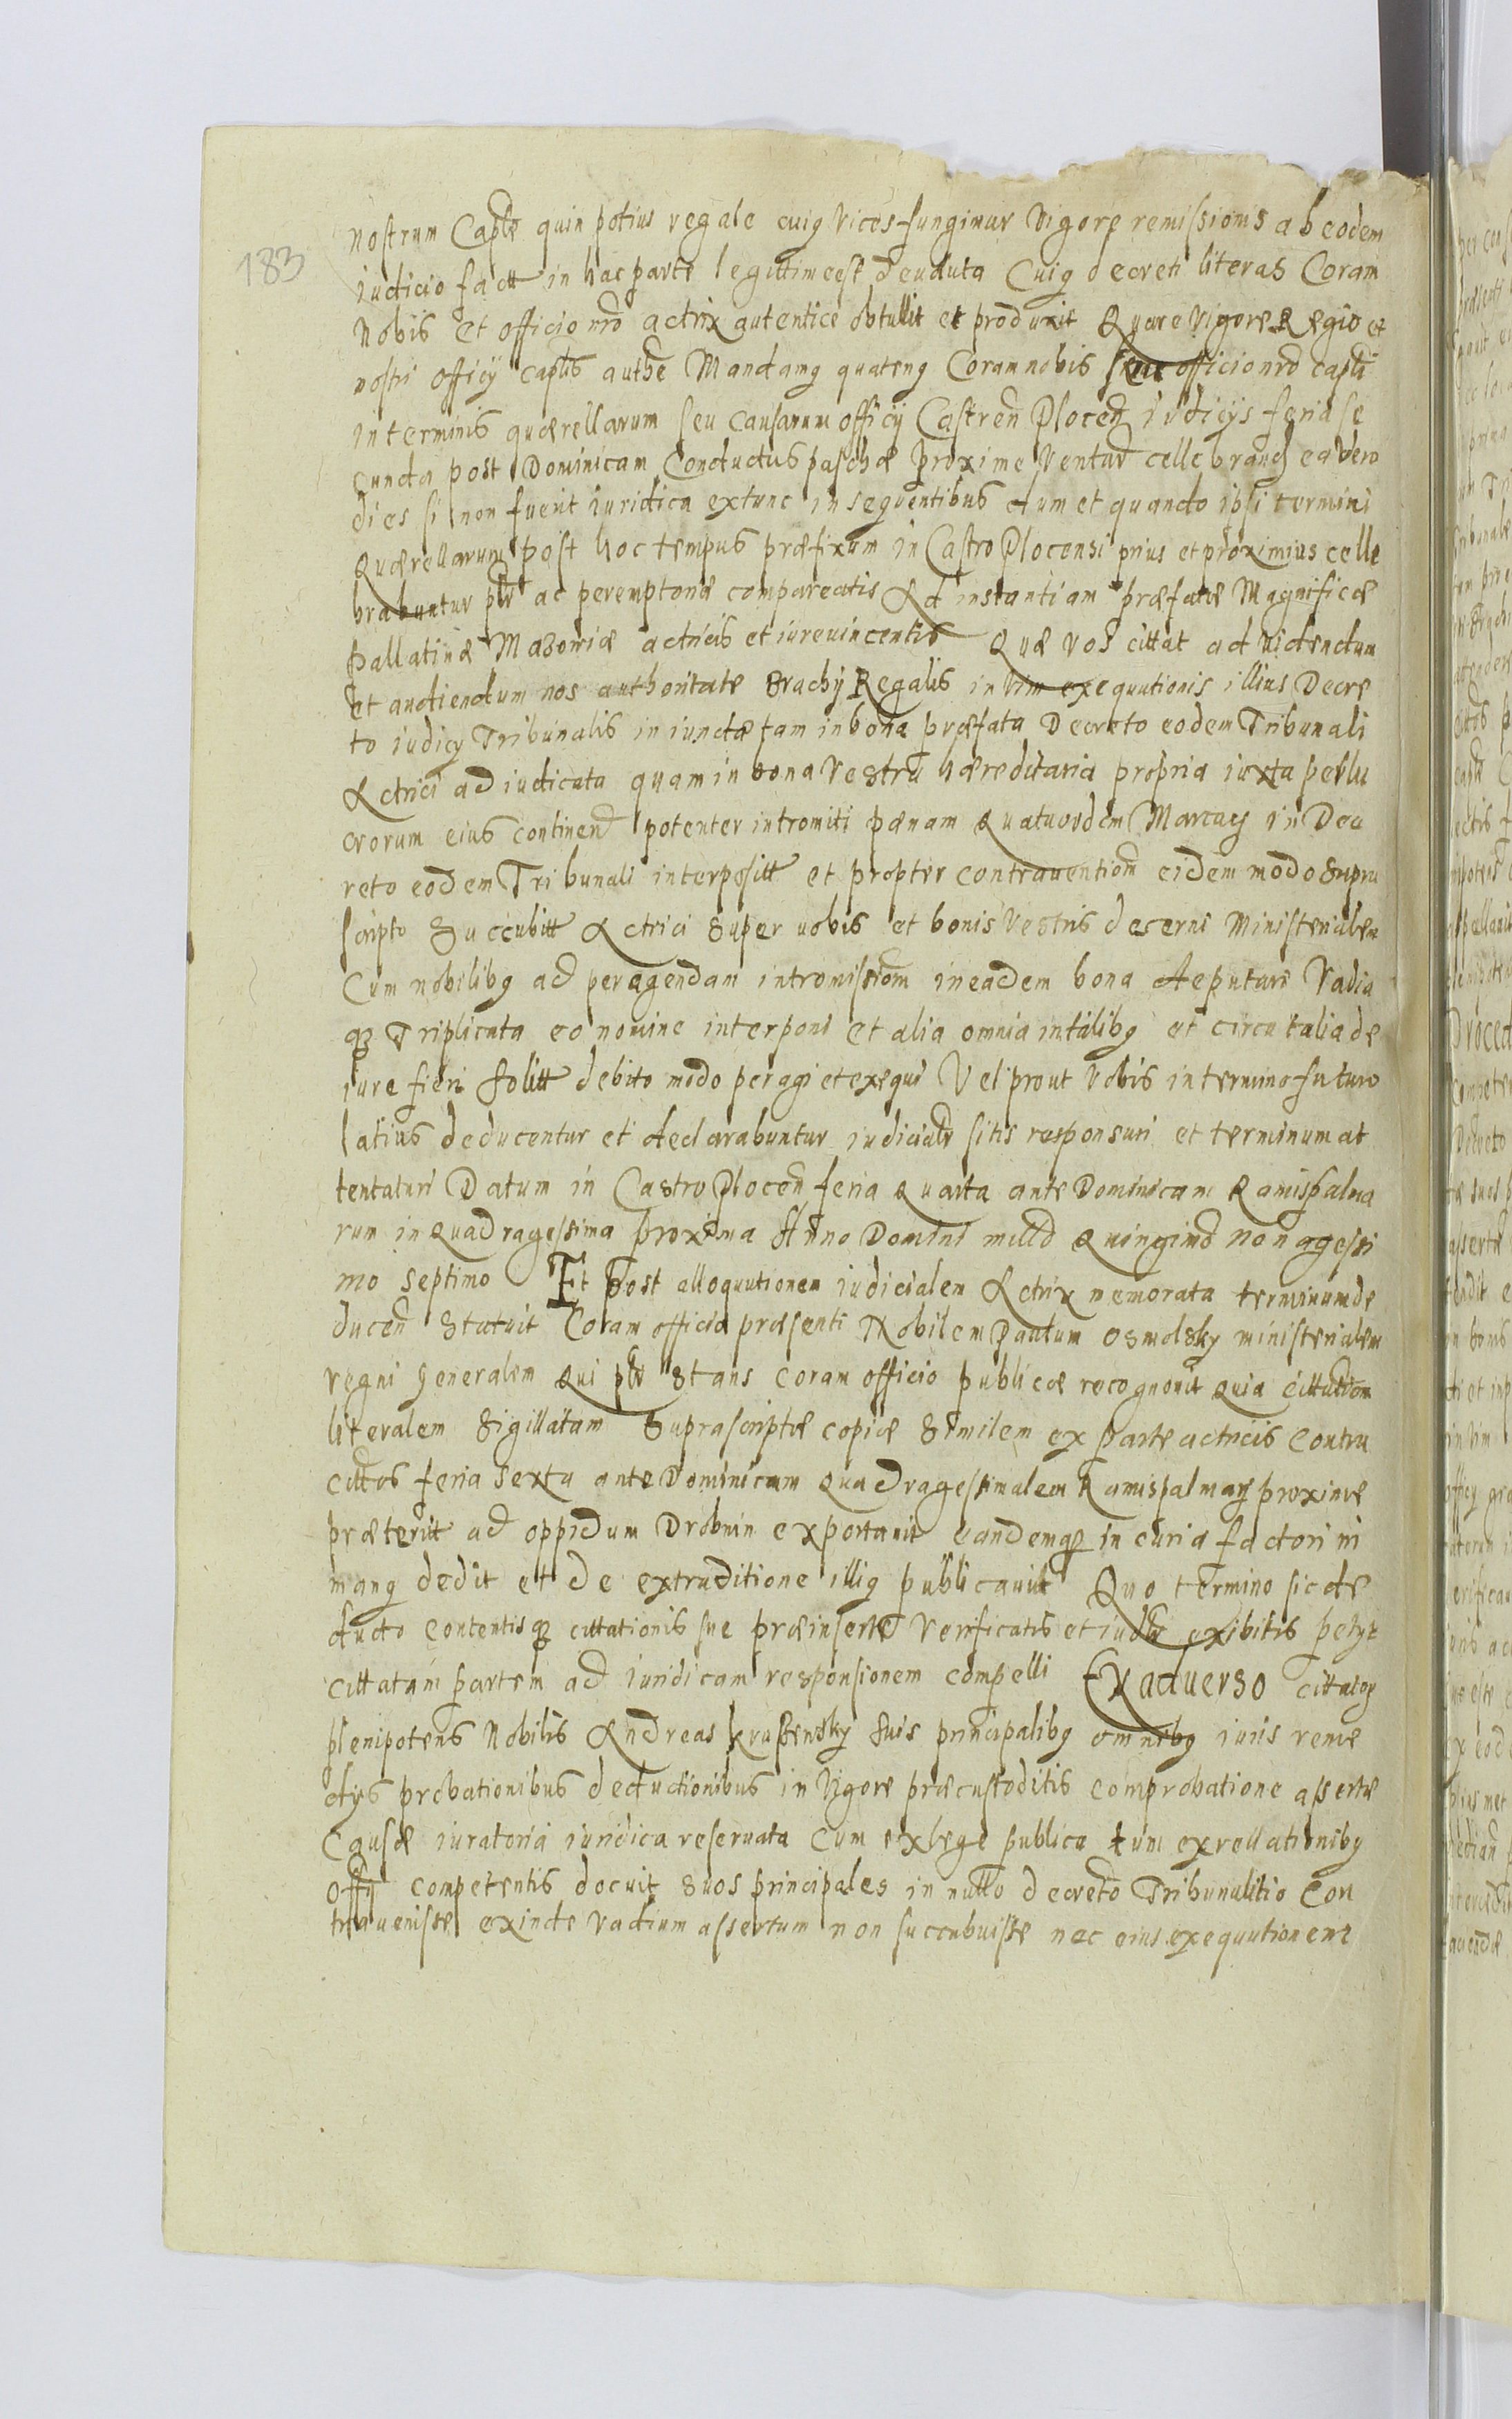 183
nostrum Caplē quin potius regale cuiq vices fungimur vigore remissionis ab eodem
iudicio factt in hac parte legittime est deuoluta Cuiq decreti literas Coram
Nobis et officio nrō actrix autentice obtullit et produxit Quare vigore Regio et
nostri officÿ caplīs authē Mandamq quatenq Coram nobis seu officio nrō caplī
in terminis quærellarum seu causarum officÿ Castren̄ Plocen̄ iudicÿs feria se
cunda post Dominicam Conductus paschæ proxime ventur̄ cellebrand̄ ea vero
dies si non fuerit iuridica extunc in sequentibus dum et quando ipsi termini
Quærellarum post hoc tempus præfixum in Castro Plocensi prius et proximius celle
brabuntur plr̄ ac peremptoriæ compareatis Ad instantiam præfatæ Magnificæ
pallatinæ Masoviæ actricis et iurevincentis Quæ vos cittat ad videndum
Et audiendum nos authoritate Brachÿ Regalis in vim exequutionis illius Decre
to iudicÿ Tribunalis in iunctæ tam in bona præfata Decreto eodem Tribunali
Actrici adiudicata quam in bona vestra hæreditaria propria iuxta perlu
crorum eius continen̄ potenter intromiti pænam Quatuordem Marcarq in Dec
reto eodem Tribunali interpositt et propter contrauention̄ eidem modo supra
scripto Succubitt Actrici super uobis et bonis vestris decerni Ministerialem
Cum nobilibq ad peragendam intromission̄ in eadem bona deputari Vadia
qz Triplicata eo nomine interponi et alia omnia in talibq et circa talia de
iure fieri solitt debito modo peragi et exequi Vel prout vobis in termino futuro
latius deducentur et declarabuntur iudicialr̄ sitis responsuri et terminum at
tentaturi Datum in Castro Plocen̄ feria Quarta ante Dominicam Ramispalma
rum in Quadragessima proxima Anno Domini millō Quingin̄ō nonagessi
mo septimo Et post alloquutionem iudicialem Actrix memorata terminum de
ducen̄ Statuit Coram officio præsenti Nobilem Paulum Osmolsky ministerialem
regni generalem Qui plr̄ Stans coram officio publicæ recognovit Quia cittation̄
literalem Sigillatam Suprascriptæ copiæ Similem ex parte actricis Contra
cittōs feria sexta ante Dominicam Quadragessimalem Ramispalmarq proxime
præteritt ad oppidum Drobnin exportavit eandemqz in curia factori in
manq dedit et de extraditione illiq publicavit Quo termino sic de
ducto contentisqz cittationis sue præinsertæ verificatis et iudlr̄ exibitis petÿt
cittatam partem ad iuridicam responsionem compelli Ex aduerso cittatorq
plenipotens Nobilis Andreas krussensky suis principalibq omnibq iuris reme
dÿs probationibus deductionibus in vigore præcustoditis comprobatione assertæ
Causæ iuratoria iuridica reseruata Cum ex lege publica tum ex rellationibq
offÿ competentis docuit Suos principales in nullo decreto Tribunalitio Con
travenisse exinde vadium assertum non succubuisse nec eius exequutionem